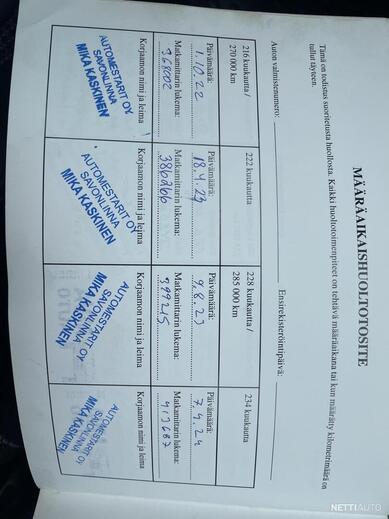 MÄÄRÄAIKAISHUOLTOTOSITE
Tämä on todistus suoritetusta huollosta. Kaikki huoltotoimenpiteet on tehtävä määräaikana tai kun määrätty kilometrimäärä on
tullut täyteen.
Auton valmistenumero:
Ensirekisteröintipäivä:
216 kuukautta /
270 000 km
Päivämäärä:
1.10.22
Matkamittarin lukema:
368002
Korjaamon nimi ja leima
AUTOMESTARIT OY
SAVONLINNA
MIKA KASKINEN
222 kuukautta
Päivämäärä:
18.4.23
Matkamittarin lukema:
386266
Korjaamon nimi ja leima
AUTOMESTARIT OY
SAVONLINNA
MIKA KASKINEN
228 kuukautta /
285 000 km
Päivämäärä:
9.8.23
Matkamittarin lukema:
399215
Korjaamon nimi ja leima
AUTOMESTARIT OY
SAVONLINNA
MIKA KASKINEN
234 kuukautta
Päivämäärä:
7.4.24
Matkamittarin lukema:
413687
Korjaamon nimi ja leima
AUTOMESTARIT OY
SAVONLINNA
MIKA KASKINEN
NETTIAUTO